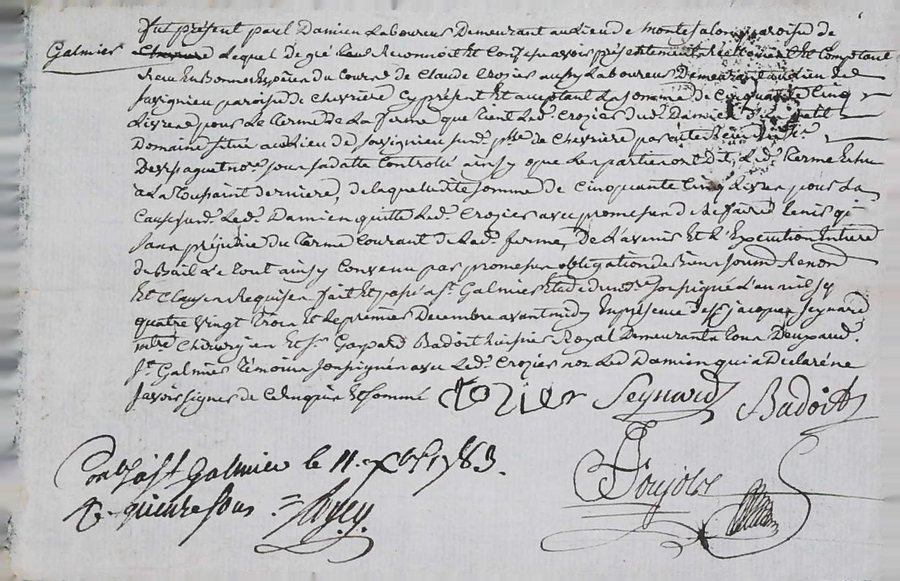 fut présent paul Damien Laboureur Demeurant au dieu de montsalon paroisse de
Galmier
Lequel de gré Reconnoit Et Confesse avoir présentement Et Comptant
Receu En Bonne Espèces du Cours de Claude Crozier aussy Laboureur Demeurant au Lieu de
Savignieu paroisse de Chevriere Cy présent Et acceptant La Somme de Cinquante Cinq
Livres pour Le terme de La ferme que tient Led. Crozier dud. Damien petit
Domaine Situé au Lieu de Savignieu Sud. psse de Chevriere par acte
Despaquet no.re Sous Sa datte Controllé ainsy que Les parties ont dit, Led. terme Echu
a La toussaint derniere, de laquelle dite Somme de Cinquante Cinq Livres pour La
Cause Led. Damien quitte Led. Crozier avec promesse
Sans préjudice du terme Courant de Lad. ferme, de L'avenir Et L'Execution Entiere
du Bail Le tout ainsy Convenu par promesse obligation de Biens Soum. Renon.
Et Clauses Requises fait Et passé a St. Galmier Etude du no.re Soussigné L'an mil Sept
quatre vingt trois Et Le premier Decembre avant midy En présence de Sr. jacques Seynard
m.tre Chirurgien Et Sr. Gaspard Badoit huissier Royal Demeurants tous Deux aud.
St. Galmier témoins Soussignés avec Led. Crozier non Led. Damien qui a Declaré ne
Savoir Signer de Ce Enquis Et Sommé Crozier Seynard Badoit
Cont. a St. Galmier le 11. xbre 1783.
R. quinze sous
Poujolz